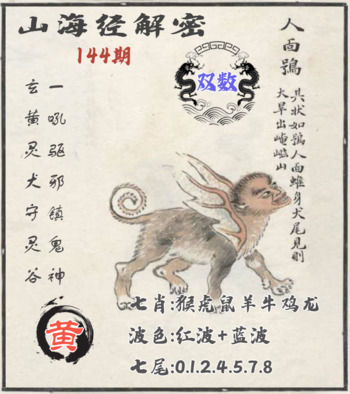 山海经解密
144期
双数
人面鴞
其状如鴞人面蜼身犬尾见则
大旱出崦嵫山
一吼驱邪镇鬼神
玄黄灵犬守灵谷
黄
七肖:猴虎鼠羊牛鸡龙
波色:红波+蓝波
七尾:0.1.2.4.5.7.8